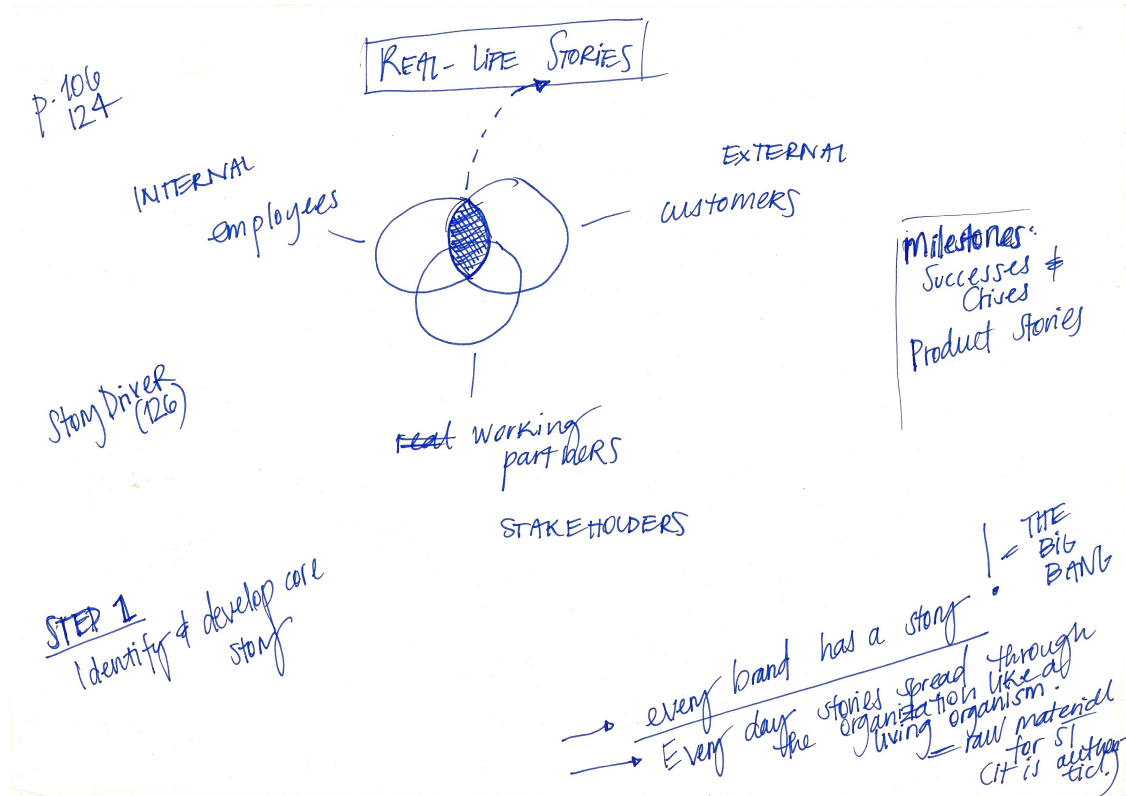 REAL-LIFE STORIES
p. 106
124
INTERNAL
employees
EXTERNAL
customers
Milestones:
Successes &
Crises
Product Stories
StoryDriver
(126)
real working
partners
STAKEHOLDERS
STEP 1
Identify & develop core
story
THE
BIG
BANG
every brand has a story !
Every day stories spread through
the organization like a
living organism.
= raw material
for ST
(it is authen
tic!)